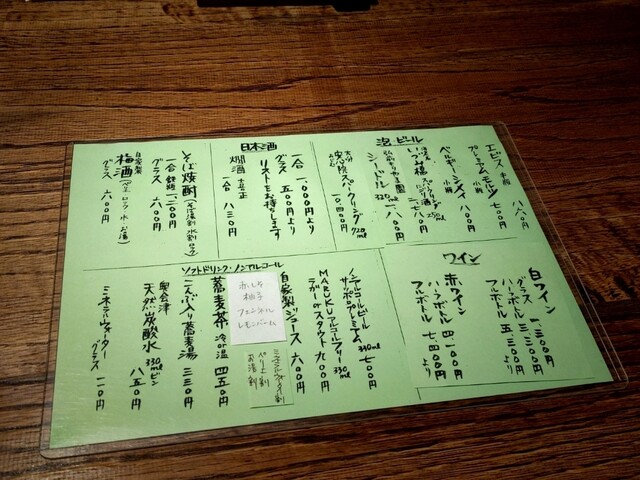 泡 ビール
エビス 中瓶 八八〇円
プレミアムモルツ 小瓶 七〇〇円
ベルギービール 小瓶 八〇〇円
日本酒
一合 一、〇〇〇円より
グラス 五〇〇円より
リストをお持ちします
燗酒 十旭正
一合 八三〇円
そば焼酎(そば湯割 水割 ロック)
一合
グラス 六〇〇円
自家製
梅酒(ロック 水 お湯)
グラス 六〇〇円
ワイン
白ワイン
グラス 一、三〇〇円
ハーフボトル 三、三〇〇円
フルボトル 五、三〇〇円より
赤ワイン
ハーフボトル 四、一〇〇円
フルボトル 七、四〇〇円
ソフトドリンク・ノンアルコール
ノンアルコールビール
サッポロプレミアム 330ml 七〇〇円
自家製ジュース 六〇〇円
赤しそ
柚子
フェンネル
レモンバーム
ミネラルウォーター割
ペリエ割
お湯割
蕎麦茶 冷or温 四五〇円
こんぶ入り蕎麦湯 三三〇円
奥会津
天然炭酸水 330ml ビン 八五〇円
ミネラルウォーター
グラス 一一〇円